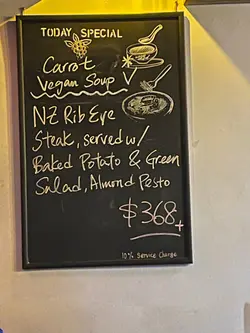 TODAY SPECIAL
Carrot
Vegan Soup
NZ Rib Eye
Steak, served w/
Baked Potato & Green
Salad, Almond Pesto
$368+
10% Service Charge